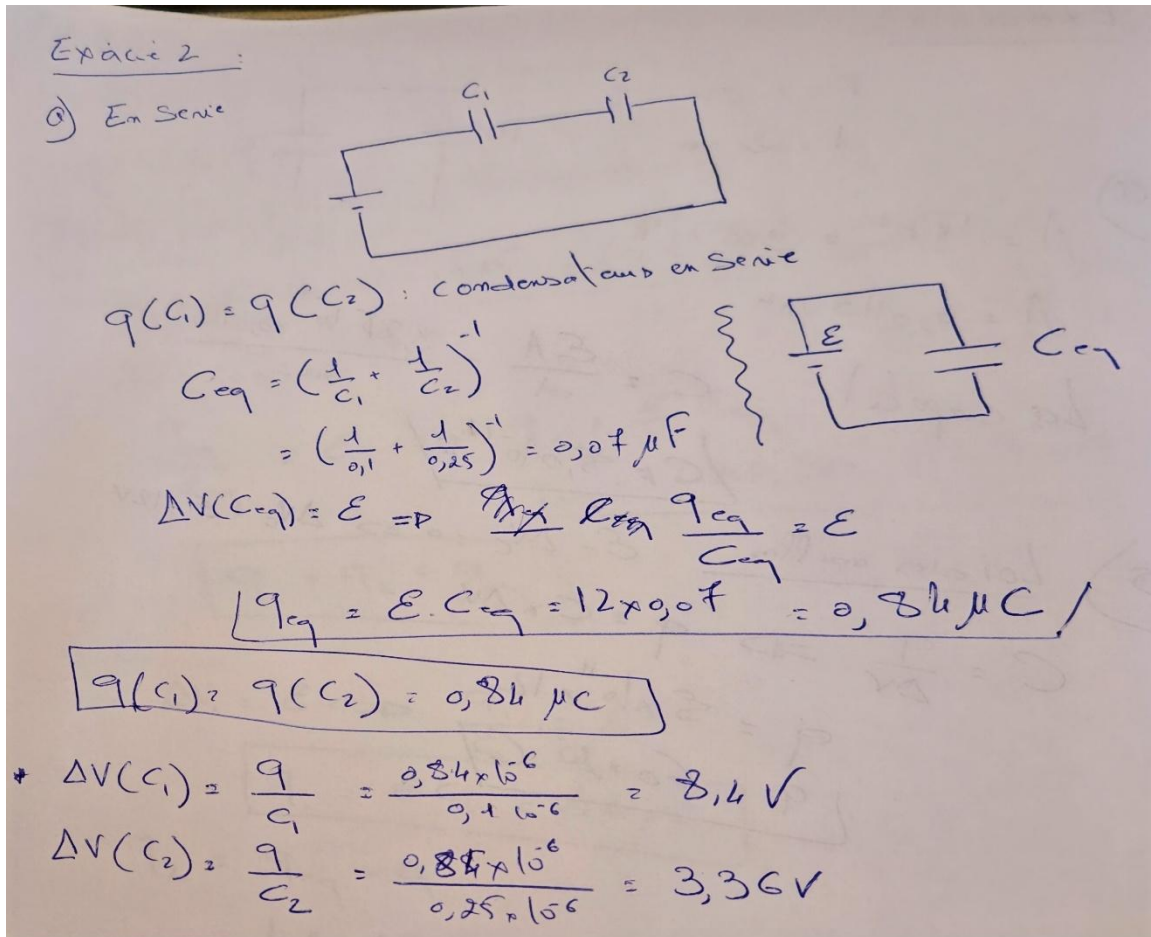 Exercice 2 :
a) En Serie
C1 C2
q(C1) = q(C2) : Condensateurs en Serie
Ceq = (1/C1 + 1/C2)^-1
ε Ceq
= (1/0,1 + 1/0,25)^-1 = 0,07 μF
ΔV(Ceq) = ε => qeq/Ceq = ε
qeq = ε.Ceq = 12x0,07 = 0,84 μC
q(C1) = q(C2) = 0,84 μC
* ΔV(C1) = q/C1 = 0,84x10^-6 / 0,1 10^-6 = 8,4 V
ΔV(C2) = q/C2 = 0,84x10^-6 / 0,25x10^-6 = 3,36 V